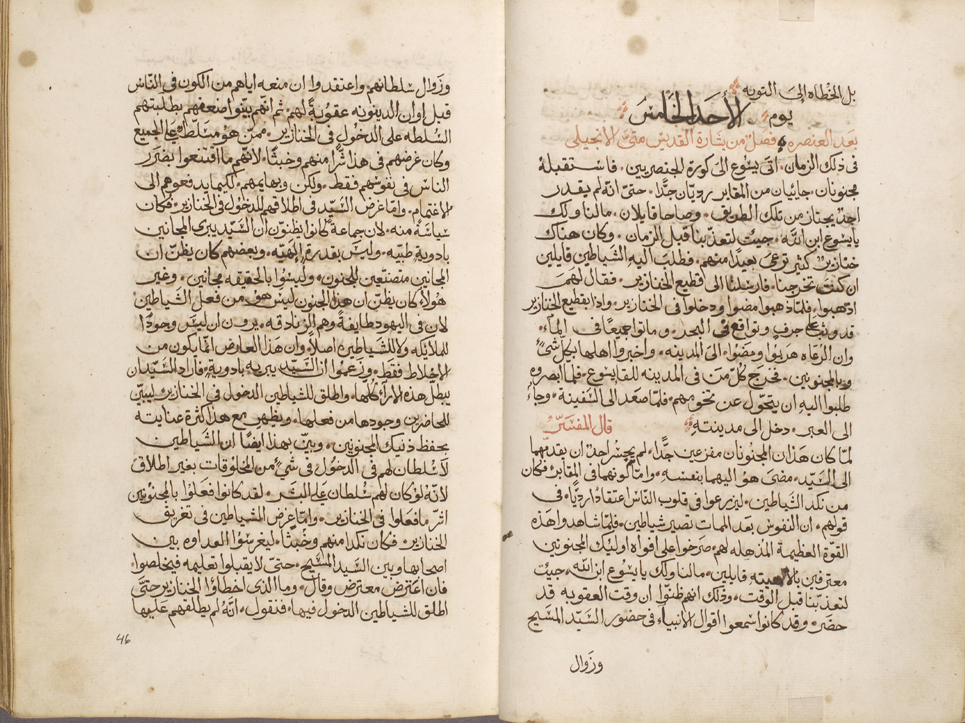 بل الخطاه إلى التوبه
يوم الأحد الخامس
بعد العنصره فصل من بشارة القديس متى الانجيلي
في ذلك الزمان. اتى يسوع الى كورة الجنصريين. فاستقبله
مجنونان. جائيان من المقابر رديان جدًّا. حتى انه لم يقدر
احد يجتاز من تلك الطريق. وصاحا قايلان. مالنا ولك
يا يسوع ابن الله. جيت لتعذبنا قبل الزمان. وكان هناك
خنازير كثير ترعى بعيدًا منهم. فطلب اليه الشياطين قايلين
ان كنت تخرجنا. فارسلنا الى قطيع الخنازير. فقال لهم
اذهبوا. فلما ذهبوا مضوا ودخلوا في الخنازير. واذا بقطيع الخنازير
قد وثب على جرف وتواقع في البحر. وماتوا جميعًا في الماء.
وان الرعاه هربوا ومضوا الى المدينه. واخبروا اهلها بكل شي
وبالمجنونين. فخرج كل من في المدينه للقا يسوع. فلما ابصروه
طلبوا اليه ان يتحول عن تخومهم. فلما صعد الى السفينة. وجاء
الى العبر. دخل الى مدينته. قال المفسر
لما كان هذان المجنونان مفزعين جدًّا. لم يجسر احد ان يقدمهما
الى السيد. مضى هو اليهما بنفسه. واما كونهما في المقابر فكان
من نكد الشياطين. ليزرعوا في قلوب الناس اعتقادًا رديًّا. في
قولهم. ان النفوس بعد الممات تصير شياطين. فلما شاهدوا هذه
القوة العظيمة المذهله لهم صرخوا على افواه اوليك المجنونين
معترفين بالاهيته قايلين. مالنا ولك يا يسوع ابن الله. جيت
لتعذبنا قبل الوقت. وذلك انهم ظنوا ان وقت العقوبه قد
حضر. وقد كانوا سمعوا اقوال الانبياء في حضور السيد المسيح
وزوال
وزوال سلطانهم. واعتقدوا ان منعه اياهم من الكون في الناس
قبل اوان الدينونه عقوبة لهم. ثم انهم بينوا ضعفهم بطلبتهم
السلطه على الدخول في الخنازير. ممن هو مسلط على الجميع
وكان غرضهم في هذا شرًا منهم وخبثًا. لانهم ما اقتنعوا بضرر
الناس في نفوسهم فقط. ولكن وبهايمهم. لكيما يدفعوهم الى
الاغتمام. واما غرض السيد في اطلاقهم للدخول في الخنازير. فكان
سياسة منه. لان جماعة كانوا يظنون ان السيد يبري المجانين
بادوية طبيه. وليس بقدرة الهيه. وبعضهم كان يظن ان
المجانين متصنعين للجنون. وليسوا بالحقيقه مجانين. وغير
هولاء كان يظن ان هذا الجنون ليس هو من فعل الشياطين
لان في اليهود طايفة وهم الزنادقه. يرون ان ليس وجودًا
للملايكه ولا للشياطين اصلًا. وان هذا العارض انما يكون من
الاخلاط فقط. وزعموا ان السيد يبريه بادويه. فاراد السيد ان
يبطل هذه الآراء كلها. واطلق للشياطين الدخول في الخنازير ليبين
للحاضرين وجودها من فعلها. ويظهر مع هذا كثرة عنايته
بحفظ ذنيك المجنونين. وبين بهذا ايضًا ان الشياطين
لا سلطان لهم في الدخول في شي من المخلوقات بغير اطلاق
لانه لو كان لهم سلطان على البشر. لقد كانوا فعلوا بالمجنونين
اشر ما فعلوا في الخنازير. واما غرض الشياطين في تغريق
الخنازير. فكان نكدًا منهم وخبثًا. ليغرسوا العداوه بين
اصحابها وبين السيد المسيح. حتى لا يقبلوا تعليمه فيخلصوا.
فان اعترض معترض وقال. وما الذي اخطاوا الخنازير حتى
اطلق للشياطين الدخول فيها. فنقول. انه لم يطلقهم عليها
46